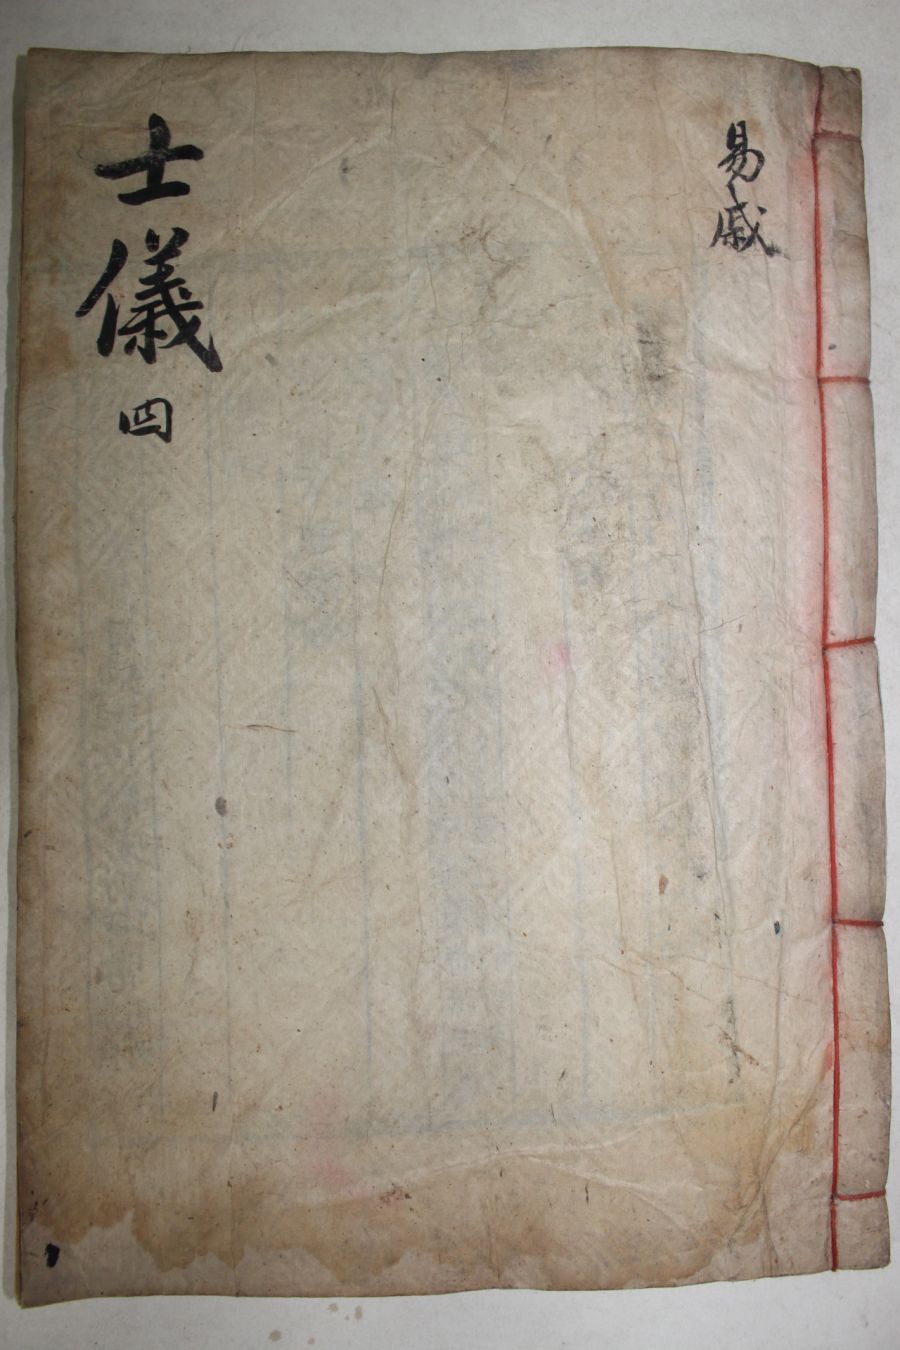 易戚
士儀
四